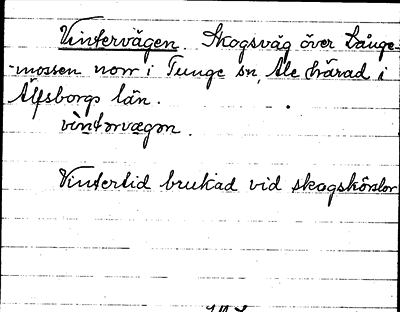 Vintervägen. Skogsväg över Långe-
-mossen norr i Tunge sn, Ale härad i
Älfsborgs län.
vintərvægən.
Vintertid brukad vid skogskörslor